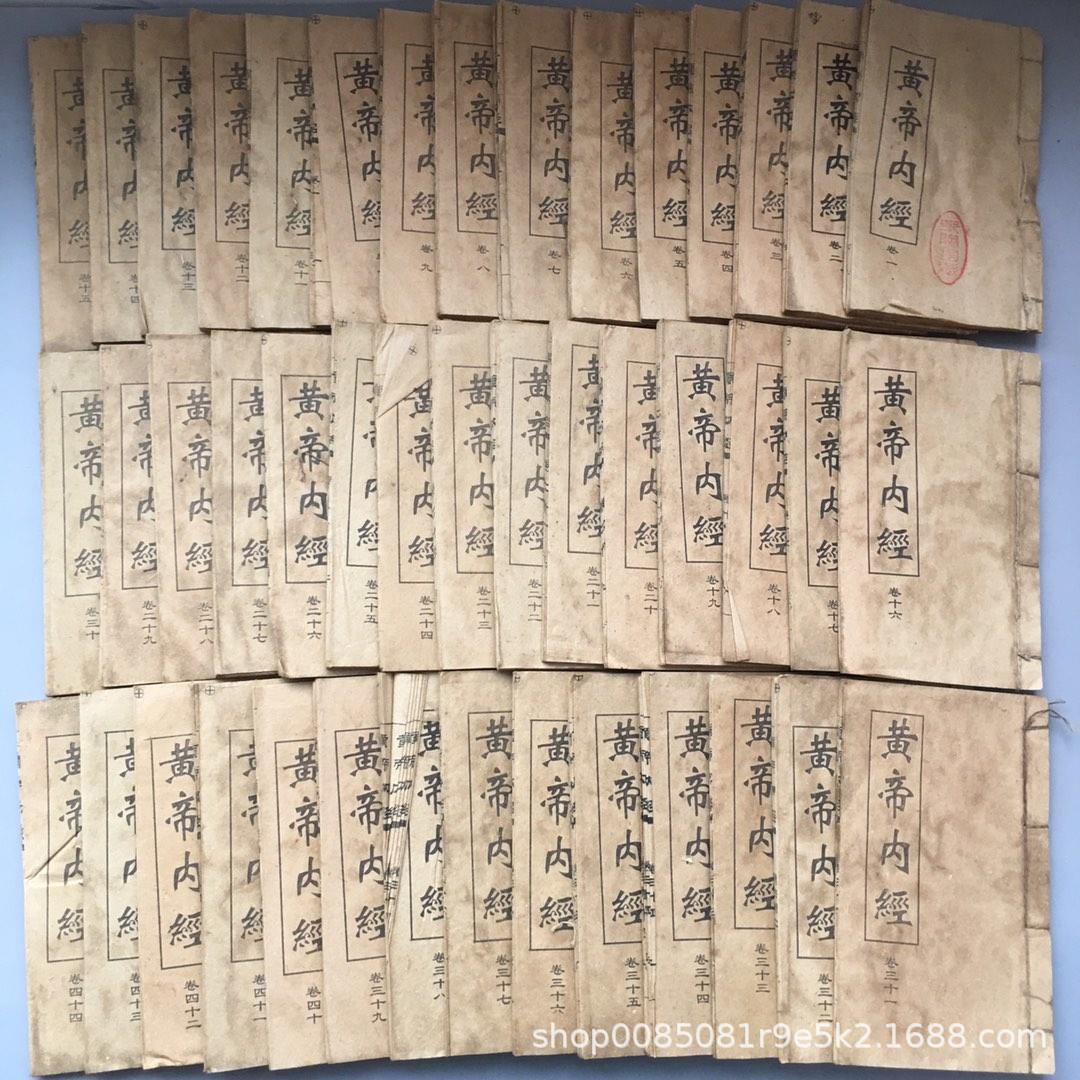 黃帝内經
卷一
黃帝内經
卷二
黃帝内經
卷三
黃帝内經
卷四
黃帝内經
卷五
黃帝内經
卷六
黃帝内經
卷七
黃帝内經
卷八
黃帝内經
卷九
黃帝内經
黃帝内經
卷十一
黃帝内經
卷十二
黃帝内經
卷十三
黃帝内經
卷十四
黃帝内經
卷十五
黃帝内經
卷十六
黃帝内經
卷十七
黃帝内經
卷十八
黃帝内經
卷十九
黃帝内經
卷二十
黃帝内經
卷二十一
黃帝内經
卷二十二
黃帝内經
卷二十三
黃帝内經
卷二十四
黃帝内經
卷二十五
黃帝内經
卷二十六
黃帝内經
卷二十七
黃帝内經
卷二十八
黃帝内經
卷二十九
黃帝内經
卷三十
黃帝内經
卷三十一
黃帝内經
卷三十二
黃帝内經
卷三十三
黃帝内經
卷三十四
黃帝内經
卷三十五
黃帝内經
卷三十六
黃帝内經
卷三十七
黃帝内經
卷三十八
黃帝内經
卷三十九
黃帝内經
卷四十
黃帝内經
卷四十一
黃帝内經
卷四十二
黃帝内經
卷四十三
黃帝内經
卷四十四
shop0085081r9e5k2.1688.com